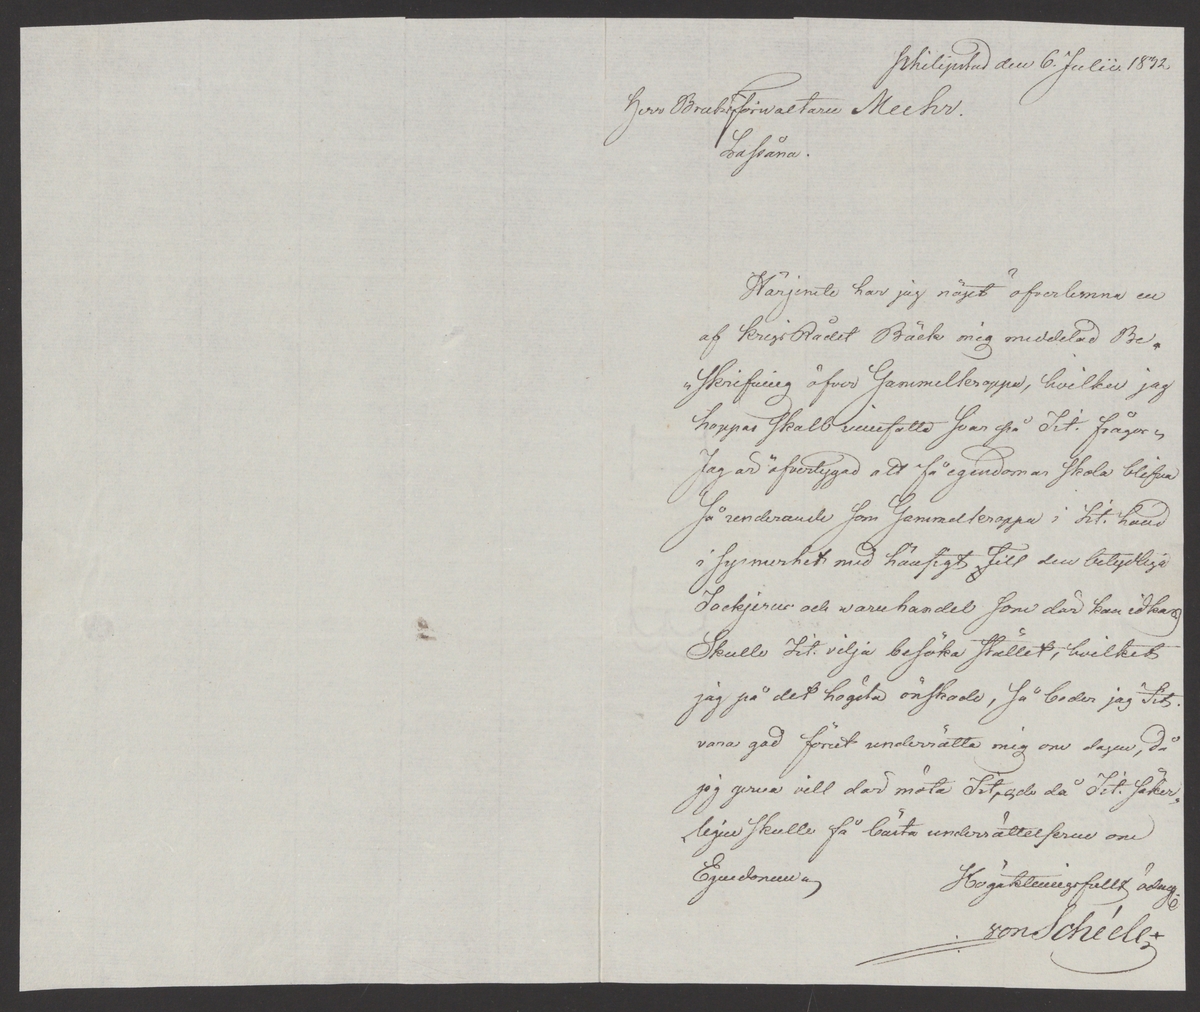 Philipstad den 6. Julii 1832.
Herr Bruksförwaltaren Mechr.
Lassåna.
Härjemte har jag nöjet öfverlemna en
af Krigs Rådet Bäck mig meddelad Be-
"skrifning öfver Gammelkroppa, hvilken jag
hoppas skall innefatta svar på Tit. frågor,
Jag är öfvertygad att få egendomar skola blifva
så renderande som Gammelkroppa i Tit. hand
i synnerhet med hänsigt till den betydliga
Tackjerns och waruhandel som där kan idkas
Skulle Tit. vilja besöka stället, hvilket
jag på det högsta önskade, så beder jag Tit.
vara god förut underrätta mig om dagen, då
jag gerna vill där möta Tit, då Tit. säker-
"ligen skulle få bästa underrättelserna om
Egendomen,
Högaktningsfullt ödmj
von Schéele